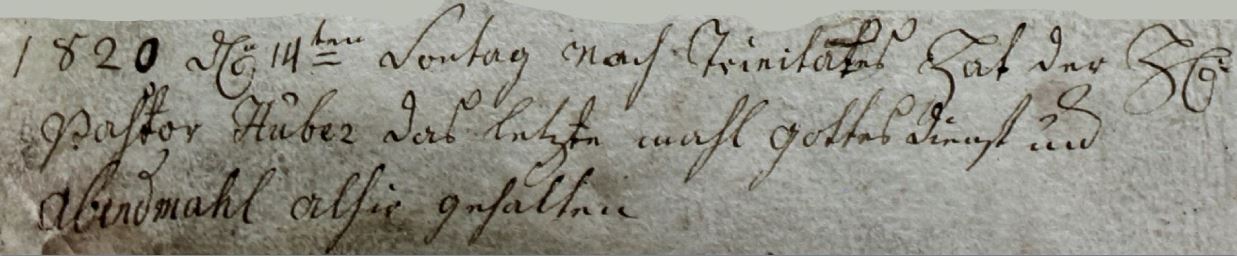 1820 den 14ten Sontag nach Trinitates Hat der H
Pastor Huber das letzte mahl gottes dienst und
Abendmahl alhir gehalten